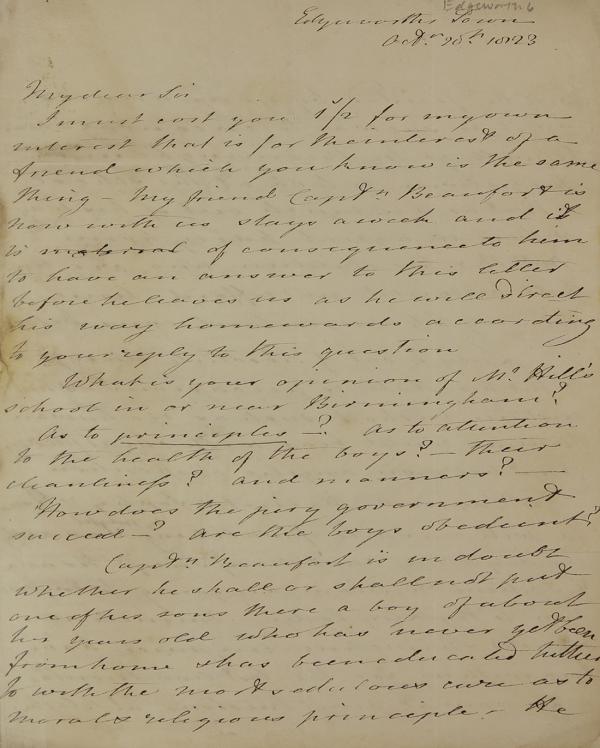 Edgeworth 6
Edgeworths Town
Octr. 20th 1823
My dear Sir
I must cost you 1s/2 for my own
interest that is for the interest of a
friend which you know is the same
thing - My friend Captn Beaufort is
now with us stays a week and it
is material of consequence to him
to have an answer to this letter
before he leaves us as he will direct
his way homewards according
to your reply to this question
What is your opinion of Mr Hill's
school in or near Birmingham?
As to principles -? as to attention
to the health of the boys? - their
cleanliness? and manners? -
How does the jury government
succeed -? are the boys obedient?
Captn Beaufort is in doubt
whether he shall or shall not put
one of his sons there a boy of about
ten years old who has never yet been
from home & has been educated hither
to with the most sedulous care as to
morals & religious principle - He